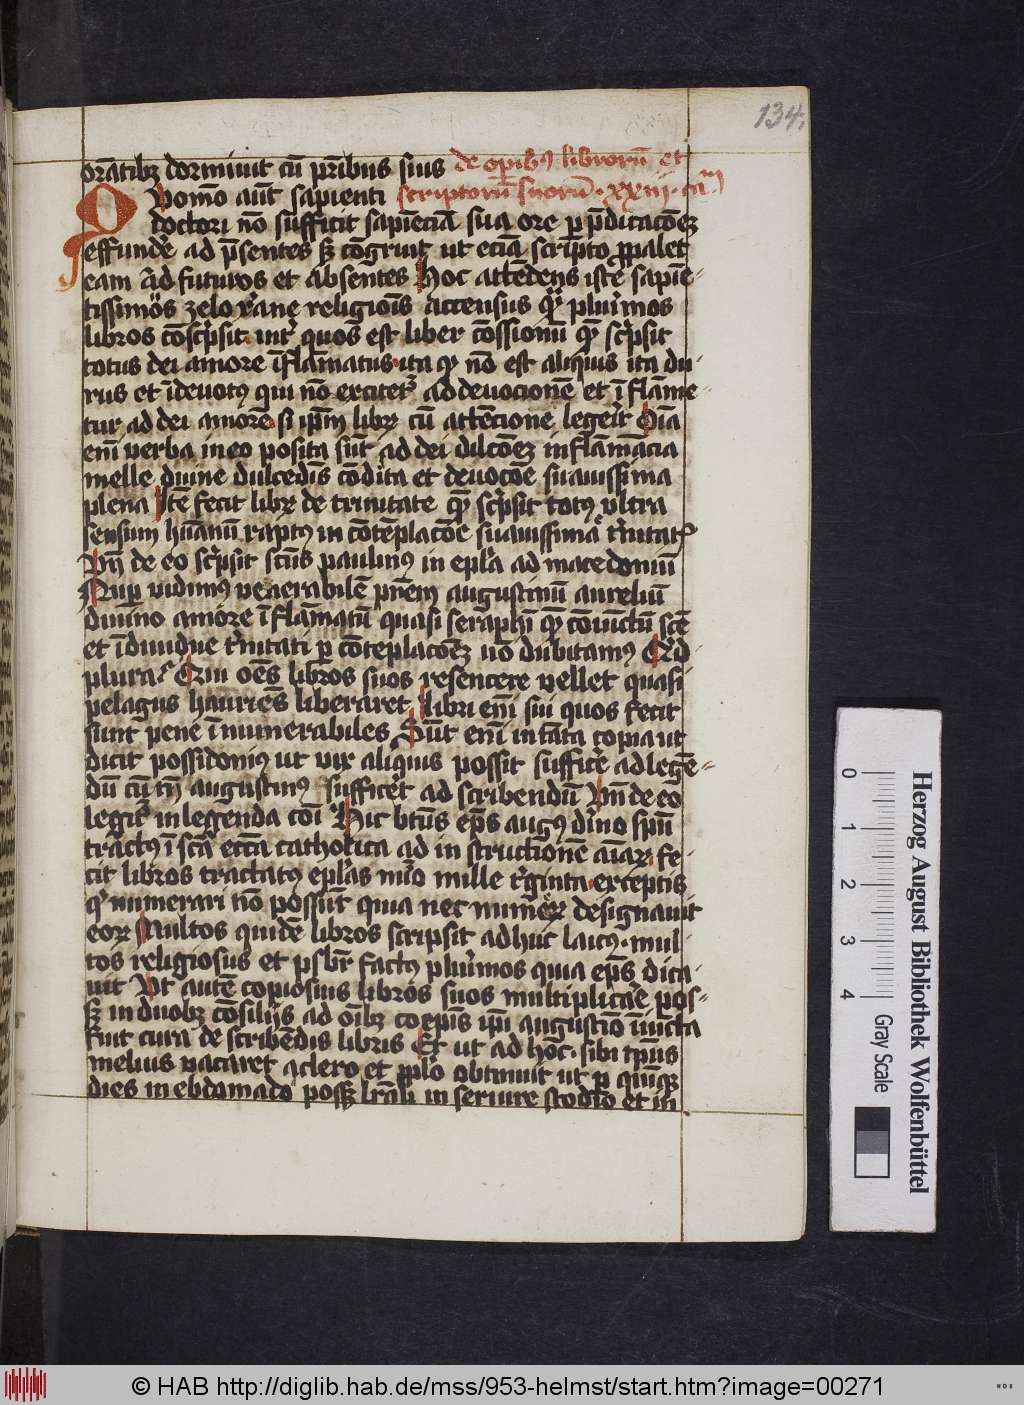 134.
orātibꝫ dormiuit cū pr̄ibus suis de opibꝰ librorū et
Quomō aūt sapienti scriptorū suorū · xxiij · ca
doctori nō sufficit sapiēciā sua ore p p̄dicacōeꝫ
effunde ad p̄sentes sꝫ cōgruit ut eciā scripto ꝓpalet
eam ad futuros et absentes Hoc attēdens iste sapiē-
tissimꝰ zelo xᵃne religiois accensus ꝙ plurimos
libros cōscⁱpsit int quos est liber cōfessionū quē scⁱpsit
totus dei amore īflāmatus ita ꝙ nō est aliquis ita du-
rus et īdeuotꝰ qui nō excitetᵘ ad deuocionē et īflāme-
tur ad dei amorē si ip̄m librū cū attēcione legerit Oīa
enī verba in eo posita sūt ad dei dilcōeꝫ inflāmācia
melle diuine dulcedīs cōdita et deuocōe suauissima
plena Iste fecit librū de trinitate quē scⁱpsit totꝰ vltra
sensum hūanū raptꝰ in cōtēplacōe suauissima tⁱnitatꝭ
Vn̄ de eo scⁱpsit sctūs paulinꝰ in epl̄a ad macedoniū
Nup vidimꝰ venerabilē pr̄em augustinū aureliū
diuino amore īflāmatū quasi seraphī quē cōuictū scē
et īdiuidue tⁱnitati p cōtēplacōeꝫ nō dubitamꝰ
plura Qui oēs libros suos resencere vellet quasi
pelagus hauriēs liberaret Libri enī sui quos fecit
sunt pene īnumerabiles Sūt enī in tāta copia ut
dicit possidoniꝰ ut vix aliquis possit sufficere ad legē-
dū augustinꝰ sufficeret ad scribendū Vn̄ de eo
legitᵘ in legenda Hic btūs ep̄s augꝰ diuīo spū
tractꝰ ī scā eccīa catholica ad instructionē aīarꝫ fe-
cit libros tractatꝰ epl̄as nūo mille tⁱginta exceptis
qⁱ numerari nō possūt quia nec numerū designauit
eorꝫ Multos quidē libros scripsit adhuc laicꝰ · mul-
tos religiosus et psbr̄ factꝰ plurimos quia ep̄s dica-
uit Vt autē copiosius libros suos multiplicare pos-
sꝫ in duobꝫ cōsilijs ad oībꝫ coepīs ip̄i augustīo īiūcta
fuit cura de scribēdis libris Et ut ad hoc · sibi tp̄us
melius vacaret a clero et pp̄lo obtinuit ut p quīqꝫ
dies in ebdomada posꝫ lr̄ali inseruire stodīo et in
0 1 2 3 4
Gray Scale
Herzog August Bibliothek Wolfenbüttel
© HAB http://diglib.hab.de/mss/953-helmst/start.htm?image=00271